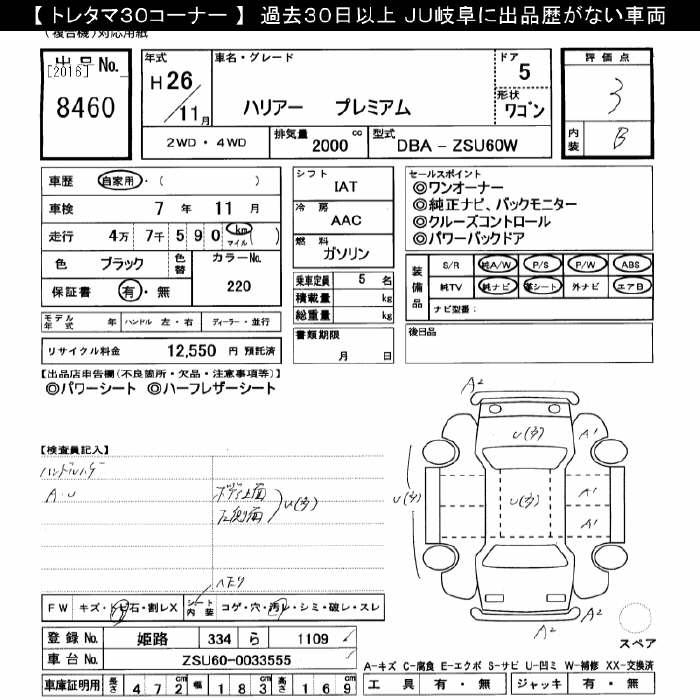 【 トレタマ30コーナー 】 過去30日以上 JU岐阜に出品歴がない車両
(複合機)対応用紙
出品No.
[2016]
8460
年式
H26/11月
車名・グレード
ハリアー プレミアム
ドア
5
形状
ワゴン
評価点
3
内装
B
2WD・4WD
排気量
2000
cc
型式
DBA - ZSU60W
車歴 自家用・( )
車検 7 年 11 月
走行 4万 7千 5 9 0 km マイル ( )
色 ブラック 色替 カラーNo.
保証書 有・無 220
モデル年式 年 ハンドル 左・右 ディーラー・並行
リサイクル料金 12,550 円 預託済
シフト
IAT
冷房
AAC
燃料
ガソリン
乗車定員 5 名
積載量 kg
総重量 kg
書類期限
月 日
セールスポイント
◎ワンオーナー
◎純正ナビ、バックモニター
◎クルーズコントロール
◎パワーバックドア
装備品
S/R 純A/W P/S P/W ABS
純TV 純ナビ 革シート 外ナビ エアB
ナビ型番:
後日品
【出品店申告欄(不良箇所・欠品・注意事項等)】
◎パワーシート ◎ハーフレザーシート
【検査員記入】
A・U
ボディ上面
左側面
U(多)
ヘタリ
FW キズ・トビ石・割レX シート内装 コゲ・穴・汚レ・シミ・破レ・スレ
登録No. 姫路 334 ら 1109
車台No. ZSU60-0033555
車庫証明用 長さ 4 7 2 cm 幅 1 8 3 cm 高さ 1 6 9 cm
A2
U(多)
A1
U(多)
U(多)
A1
A1
A2
A2
スペア
A-キズ C-腐食 E-エクボ S-サビ U-凹ミ W-補修 XX-交換済
工具 有・無 ジャッキ 有・無